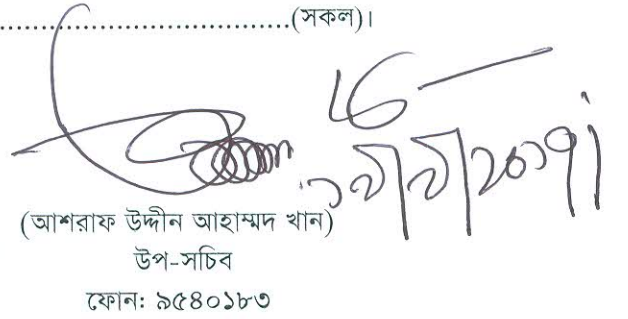 ....................................(সকল)।
(আশরাফ উদ্দীন আহাম্মদ খান)
উপ-সচিব
ফোন: ৯৫৪০১৮৩